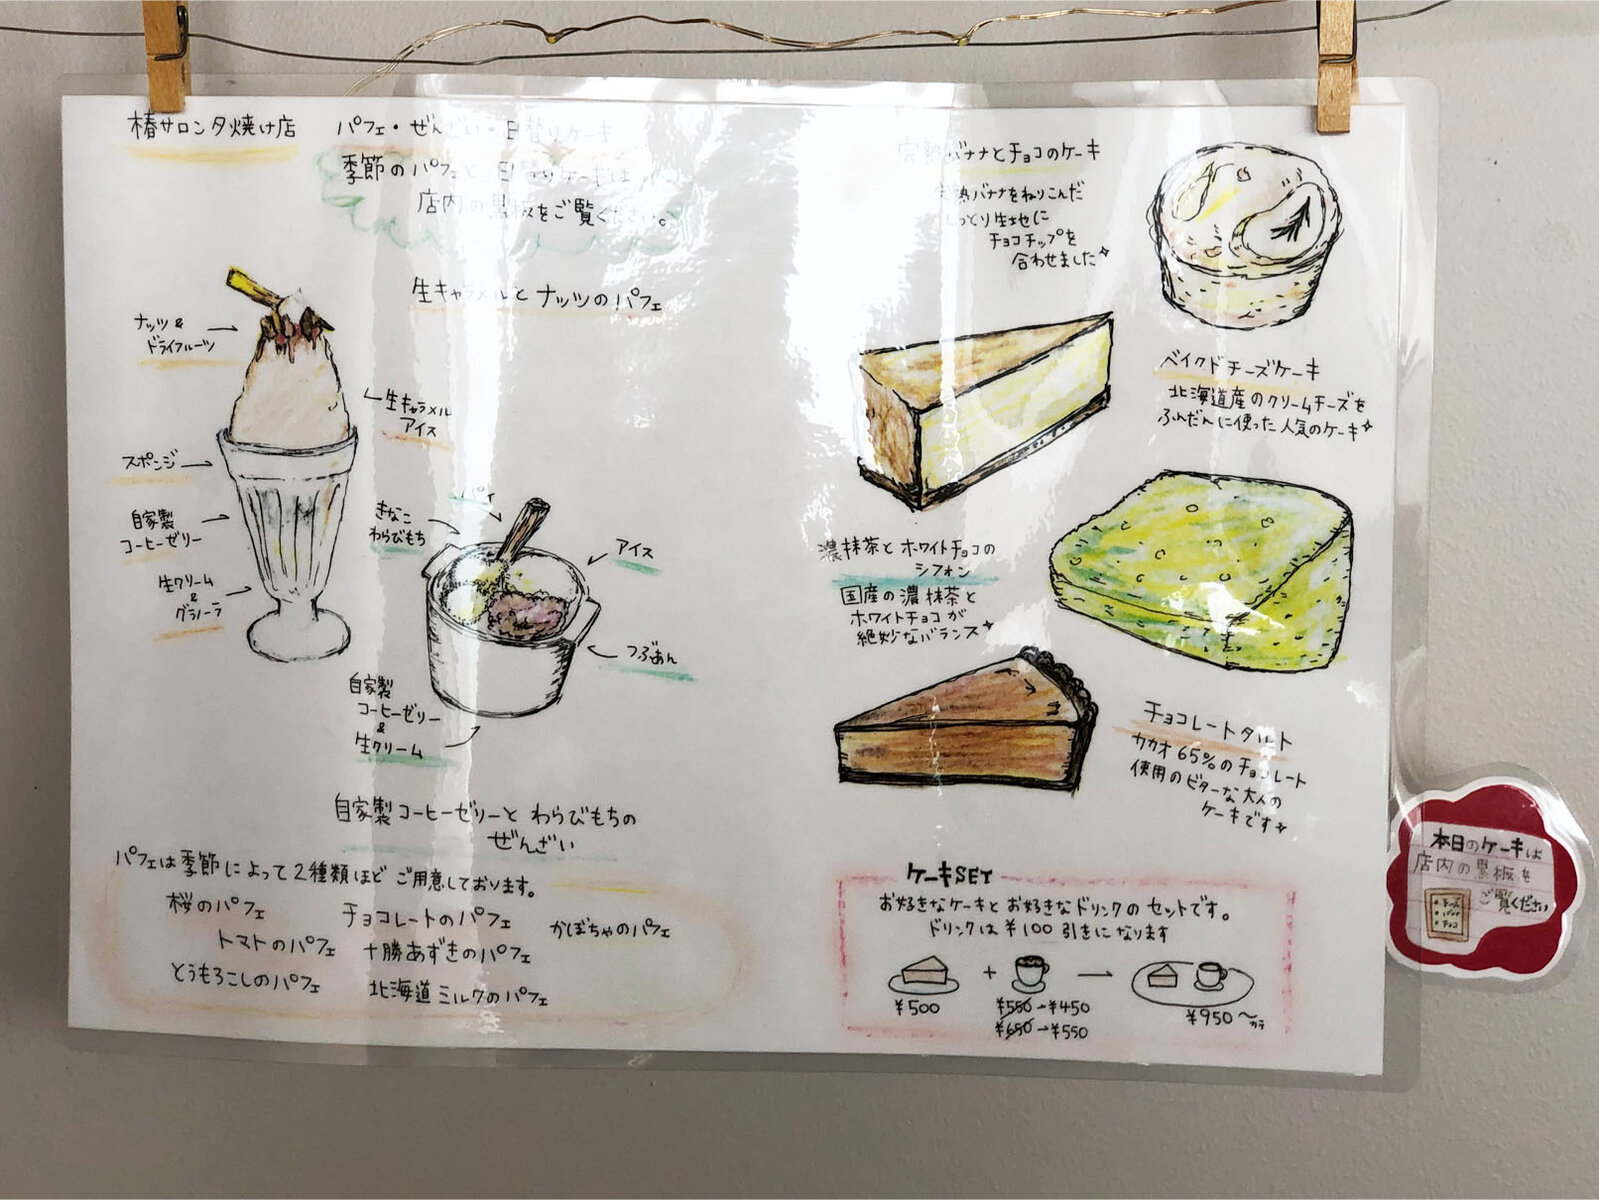 椿サロン夕焼け店
パフェ・ぜんざい・日替りケーキ
季節のパフェと日替りケーキは
店内の黒板をご覧ください。
生キャラメルとナッツのパフェ
ナッツ&
ドライフルーツ
生キャラメル
アイス
スポンジ
自家製
コーヒーゼリー
生クリーム
&
グラノーラ
パイ
きなこ
わらびもち
アイス
つぶあん
自家製
コーヒーゼリー
&
生クリーム
自家製コーヒーゼリーとわらびもちの
ぜんざい
パフェは季節によって2種類ほどご用意しております。
桜のパフェ
チョコレートのパフェ
かぼちゃのパフェ
トマトのパフェ
十勝あずきのパフェ
とうもろこしのパフェ
北海道ミルクのパフェ
完熟バナナとチョコのケーキ
完熟バナナをねりこんだ
しっとり生地に
チョコチップを
合わせました
ベイクドチーズケーキ
北海道産のクリームチーズを
ふんだんに使った人気のケーキ
濃抹茶とホワイトチョコの
シフォン
国産の濃抹茶と
ホワイトチョコが
絶妙なバランス
チョコレートタルト
カカオ65%のチョコレート
使用のビターな大人の
ケーキです
ケーキSET
お好きなケーキとお好きなドリンクのセットです。
ドリンクは¥100引きになります
+ →
¥500
¥550→¥450
¥650→¥550
¥950〜カラ
本日のケーキは
店内の黒板を
ご覧ください